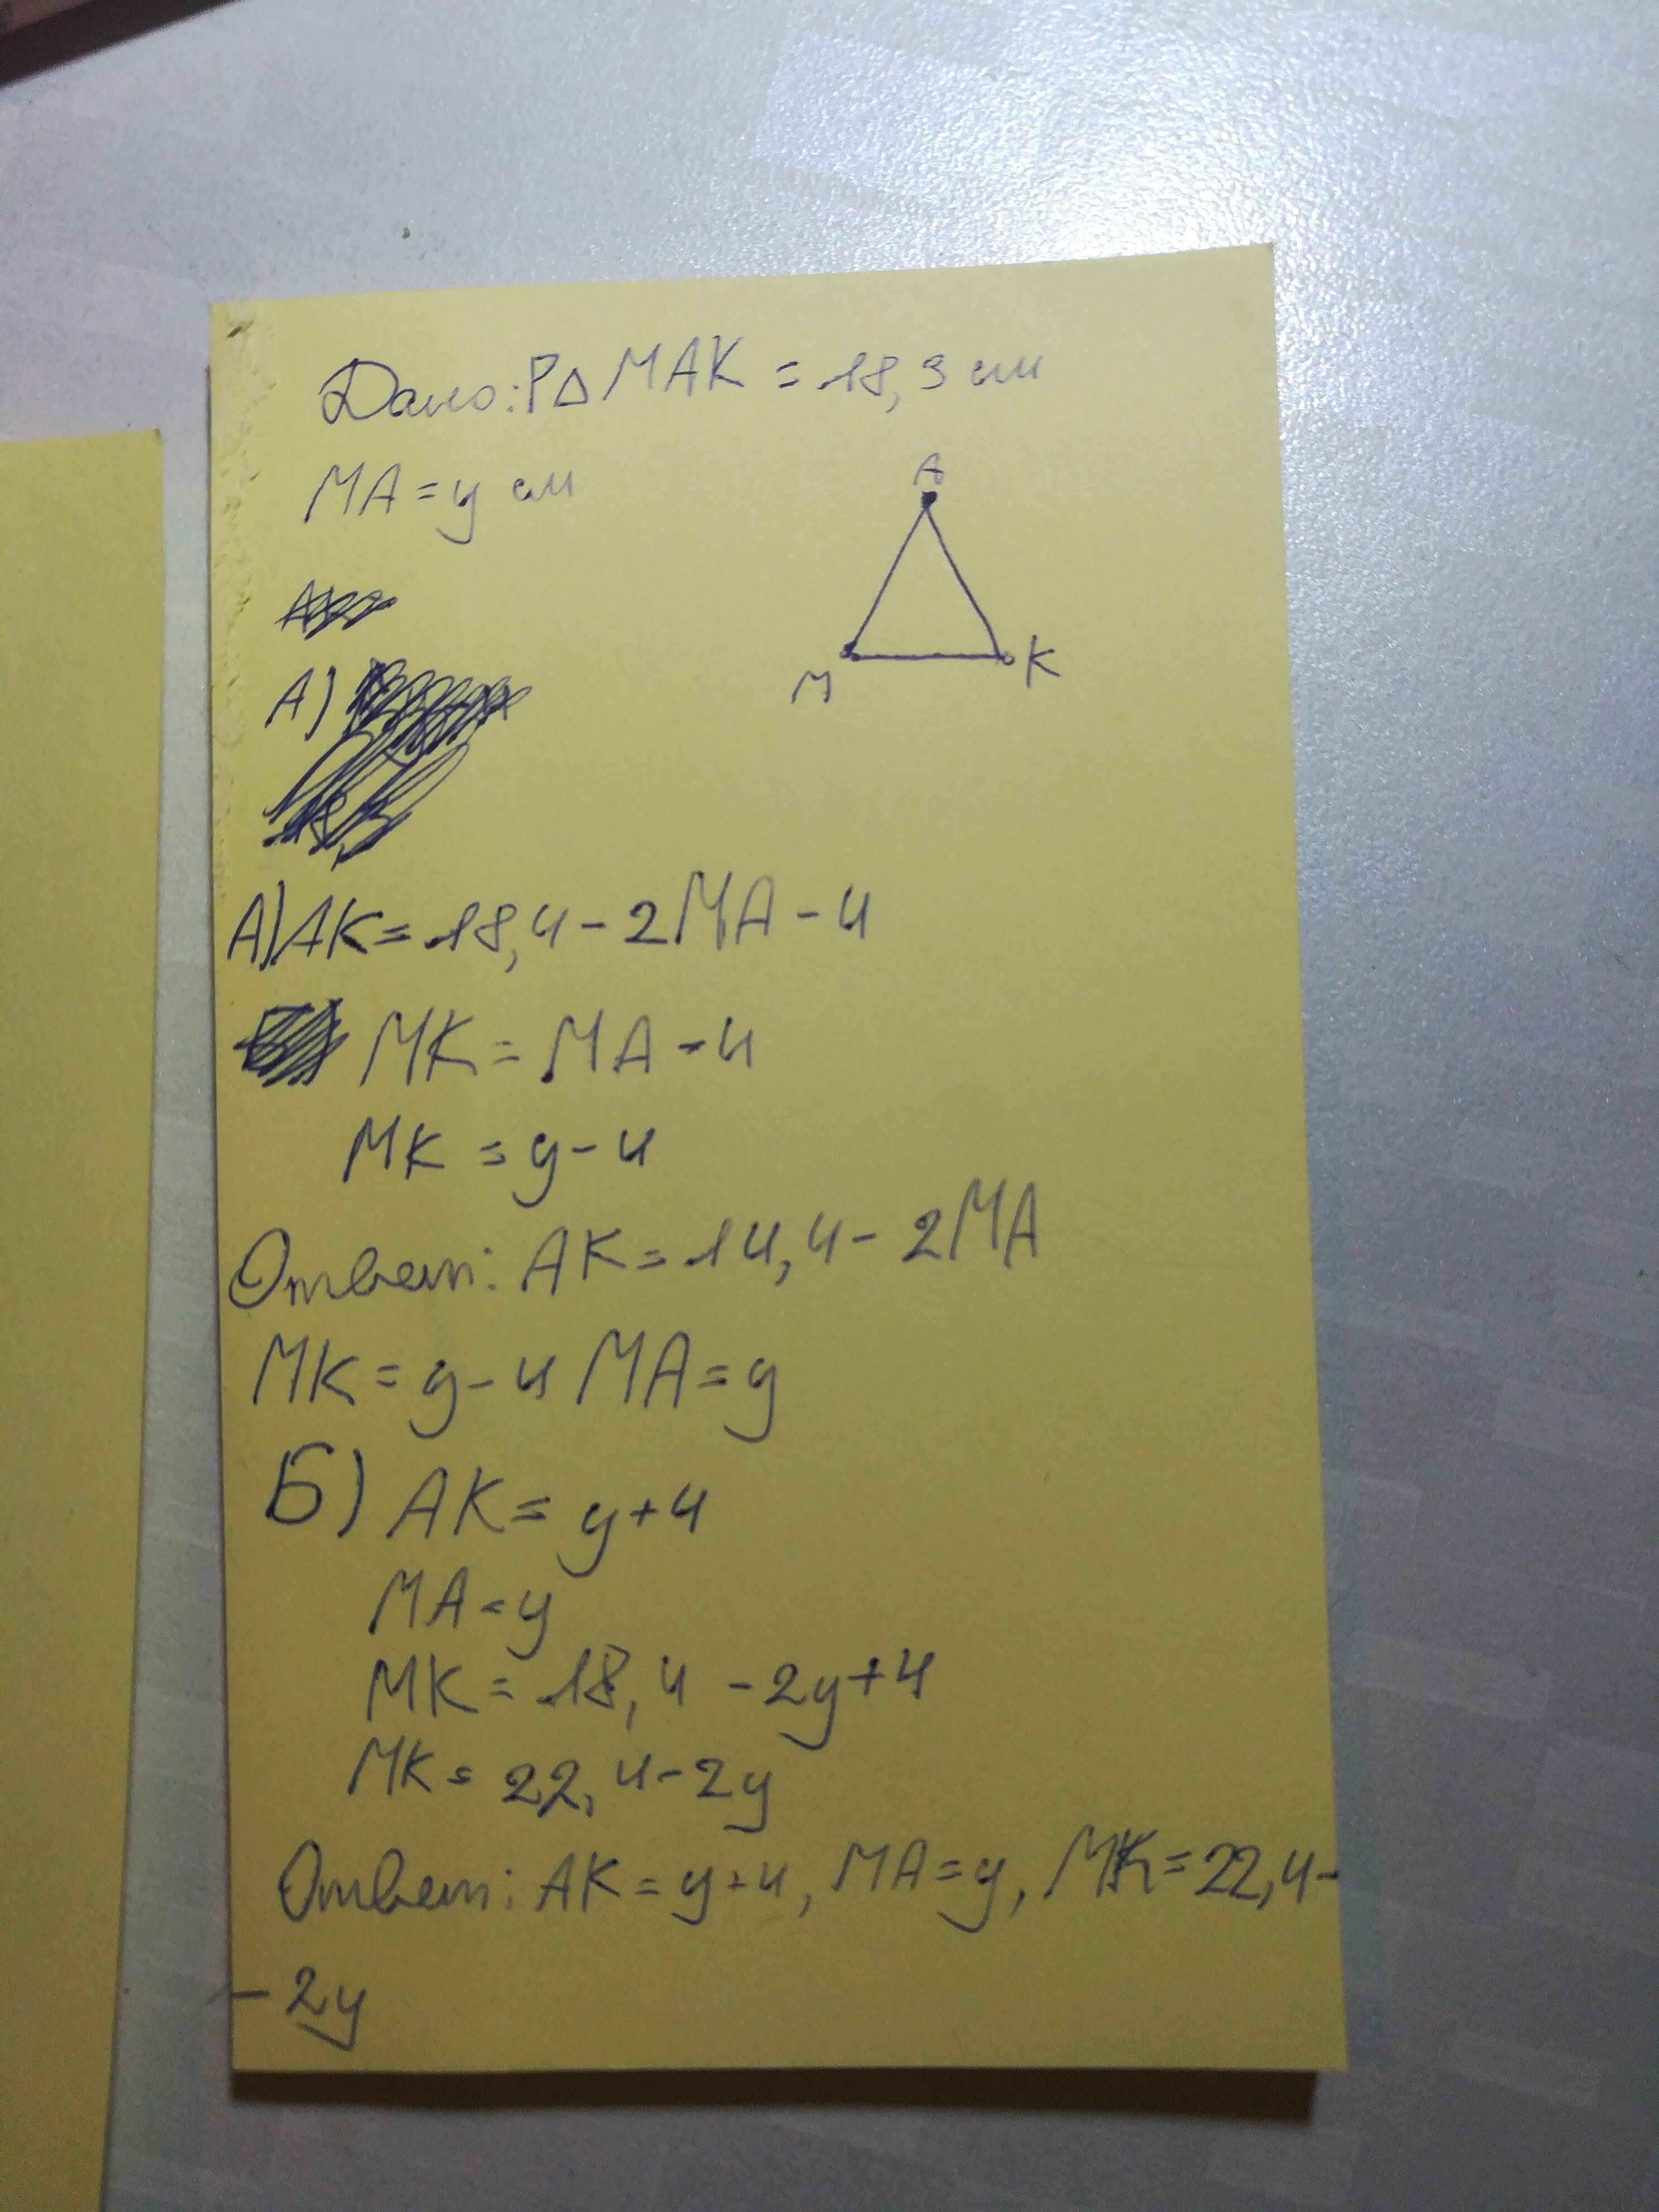 Дано: P△ MAK = 18,3 см
MA = y см
A
M
K
А)
А) AK = 18,4 - 2MA - 4
MK = MA - 4
MK = y - 4
Ответ: AK = 14,4 - 2MA
MK = y - 4 MA = y
Б) AK = y + 4
MA = y
MK = 18,4 - 2y + 4
MK = 22,4 - 2y
Ответ: AK = y + 4, MA = y, MK = 22,4 -
- 2y